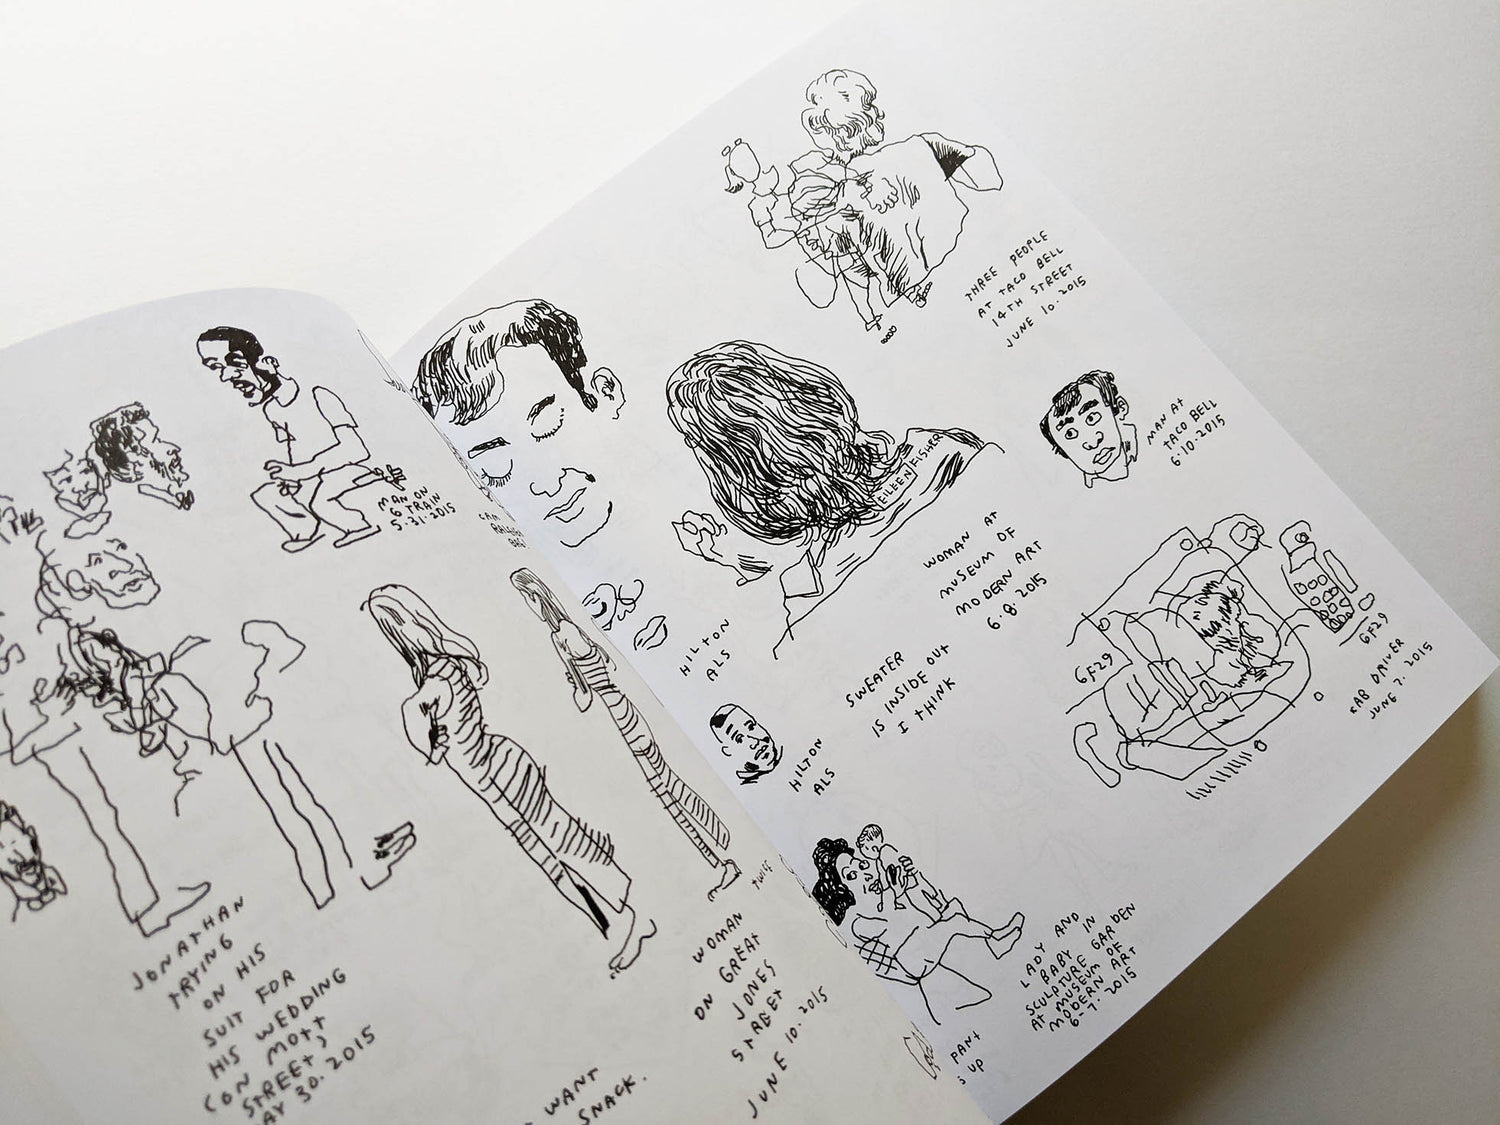 MAN ON
6 TRAIN
5.31.2015
JONATHAN
TRYING
ON HIS
SUIT FOR
HIS WEDDING
(ON MOTT
STREET)
AY 30.2015
WANT
SNACK.
TWICE
WOMAN
ON GREAT
JONES
STREET
JUNE 10.2015
THREE PEOPLE
AT TACO BELL
14TH STREET
JUNE 10.2015
MAN AT
TACO BELL
6.10.2015
EILEEN FISHER
WOMAN AT
MUSEUM OF
MODERN ART
6.8.2015
SWEATER
IS INSIDE OUT
I THINK
HILTON
ALS
HILTON
ALS
6F29
6F29
KAB DRIVER
JUNE 7.2015
LADY AND
BABY IN
SCULPTURE GARDEN
AT MUSEUM OF
MODERN ART
6-7.2015
PANT
S UP